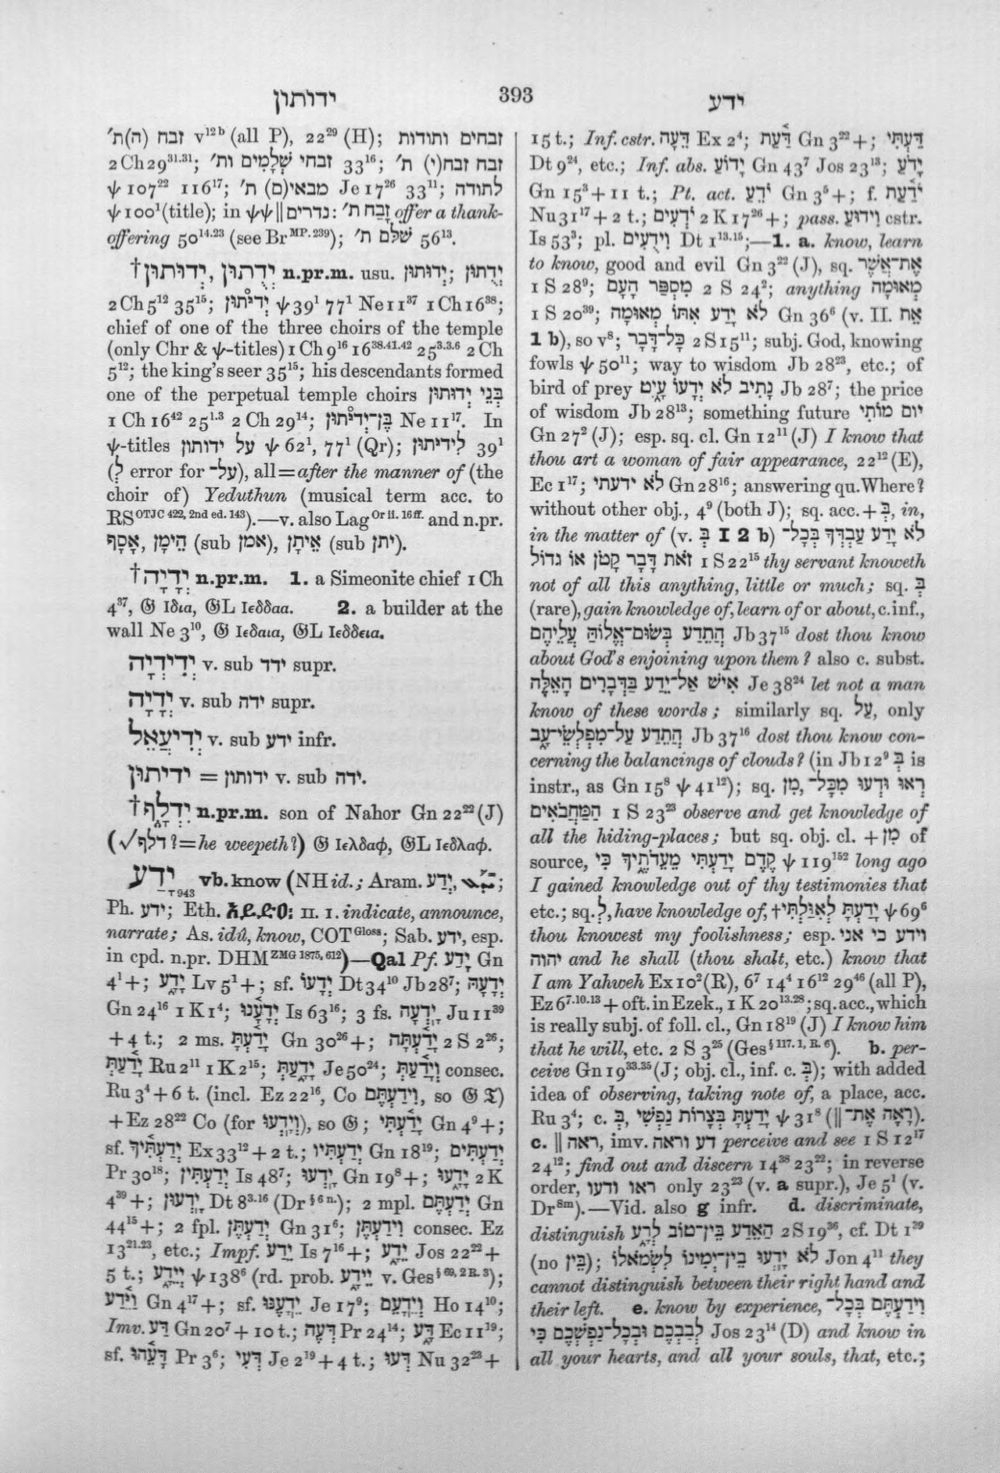 ידותון
393
ידע
זבח (ה)ת׳ v¹²ᵇ (all P), 22²⁹ (H); זבחים ותודות
2 Ch 29³¹·³¹; זבחי שְׁלָמִים ות׳ 33¹⁶; זבח זבח(י) ת׳
ψ 107²² 116¹⁷; מבאי(ם) ת׳ Je 17²⁶ 33¹¹; לתודה
ψ 100¹ (title); in ψψ ‖ נדרים: זָבַח ת׳ offer a thank-
offering 50¹⁴·²³ (see Br ᴹᴾ·²³⁹); שׁלם ת׳ 56¹³.
†יְדֻתוּן, יְדוּתוּן n.pr.m. usu. יְדוּתוּן; יְדֻתוּן
2 Ch 5¹² 35¹⁵; יְדִיתוּן ψ 39¹ 77¹ Ne 11¹⁷ 1 Ch 16³⁸;
chief of one of the three choirs of the temple
(only Chr & ψ-titles) 1 Ch 9¹⁶ 16³⁸·⁴¹·⁴² 25³·³·⁶ 2 Ch
5¹²; the king's seer 35¹⁵; his descendants formed
one of the perpetual temple choirs בְּנֵי יְדוּתוּן
1 Ch 16⁴² 25¹·³ 2 Ch 29¹⁴; בֶּן־יְדִיתוּן Ne 11¹⁷. In
ψ-titles על ידותון ψ 62¹, 77¹ (Qr); לִידִיתוּן 39¹
(? לְ error for עַל־), all = after the manner of (the
choir of) Yeduthun (musical term acc. to
RS ᴼᵀᴶᶜ ⁴²², ²ⁿᵈ ᵉᵈ· ¹⁴³).—v. also Lag ᴼʳ ⁱⁱ· ¹⁶ ᶠᶠ· and n.pr.
אָסָף, הֵימָן (sub אמן), אֵיתָן (sub יתן).
†יְדָיָה n.pr.m. 1. a Simeonite chief 1 Ch
4³⁷, 𝔊 Ιδια, 𝔊L Ιεδδαα. 2. a builder at the
wall Ne 3¹⁰, 𝔊 Ιεδαια, 𝔊L Ιεδδεια.
יְדִידְיָה v. sub ידד supr.
יְדָיָה v. sub ידה supr.
יְדִיעֲאֵל v. sub ידע infr.
ידיתון = ידותון v. sub ידה.
†יִדְלָף n.pr.m. son of Nahor Gn 22²² (J)
(√דלף ? = he weepeth?) 𝔊 Ιελδαφ, 𝔊L Ιεδλαφ.
יָדַע ₉₄₃ vb. know (NH id.; Aram. יְדַע, ܝܕܥ;
Ph. ידע; Eth. II. 1. indicate, announce,
narrate; As. idû, know, COT ᴳˡᵒˢˢ; Sab. ידע, esp.
in cpd. n.pr. DHM ᶻᴹᴳ ¹⁸⁷⁵, ⁶¹²)—Qal Pf. יָדַע Gn
4¹ +; יָדָע Lv 5¹ +; sf. יְדָעוֹ Dt 34¹⁰ Jb 28⁷; יְדָעָהּ
Gn 24¹⁶ 1 K 1⁴; יְדָעָנוּ Is 63¹⁶; 3 fs. יָדְעָה Ju 11³⁹
+ 4 t.; 2 ms. יָדַעְתָּ Gn 30²⁶ +; יָדַעְתָּה 2 S 2²⁶;
יָדַעַתְּ Ru 2¹¹ 1 K 2¹⁵; יָדַעַתְּ Je 50²⁴; וְיָדַעַתְּ consec.
Ru 3⁴ + 6 t. (incl. Ez 22¹⁶, Co וִידַעְתֶּם, so 𝔊 𝔗)
+ Ez 28²² Co (for וְיָדְעוּ), so 𝔊; יָדַעְתִּי Gn 4⁹ +;
sf. יְדַעְתִּיךָ Ex 33¹² + 2 t.; יְדַעְתִּיו Gn 18¹⁹; יְדַעְתִּים
Pr 30¹⁸; יְדַעְתִּין Is 48⁷; יָדְעוּ Gn 19⁸ +; יָדָעוּ 2 K
4³⁹ +; יָדְעוּן Dt 8³·¹⁶ (Dr § ⁶ ⁿ·); 2 mpl. יְדַעְתֶּם Gn
44¹⁵ +; 2 fpl. יְדַעְתֶּן Gn 31⁶; וִידַעְתֶּן consec. Ez
13²¹·²³, etc.; Impf. יֵדַע Is 7¹⁶ +; יֵדָע Jos 22²² +
5 t.; יְיֵדָע ψ 138⁶ (rd. prob. יְיַדַּע v. Ges § ⁶⁹, ² ᴿ· ³);
וַיֵּדַע Gn 4¹⁷ +; sf. יֵדָעֶנּוּ Je 17⁹; וְיֵדָעֵם Ho 14¹⁰;
Imv. דַּע Gn 20⁷ + 10 t.; דְּעֶה Pr 24¹⁴; דָּע Ec 11¹⁹;
sf. דָּעֵהוּ Pr 3⁶; דְּעִי Je 2¹⁹ + 4 t.; דְּעוּ Nu 32²³ +
15 t.; Inf. cstr. דֵּעָה Ex 2⁴; דַּעַת Gn 3²² +; דַּעְתִּי
Dt 9²⁴, etc.; Inf. abs. יָדוֹעַ Gn 43⁷ Jos 23¹³; יָדֹעַ
Gn 15³ + 11 t.; Pt. act. יֹדֵעַ Gn 3⁵ +; f. יֹדַעַת
Nu 31¹⁷ + 2 t.; יֹדְעִים 2 K 17²⁶ +; pass. וִידוּעַ cstr.
Is 53³; pl. וִידֻעִים Dt 1¹³·¹⁵;—1. a. know, learn
to know, good and evil Gn 3²² (J), sq. אֶת־אֲשֶׁר
1 S 28⁹; מִסְפַּר הָעָם 2 S 24²; anything מְאוּמָה
1 S 20³⁹; לֹא יָדַע אִתּוֹ מְאוּמָה Gn 36⁶ (v. II. אֵת
1 b), so v⁸; כָּל־דָּבָר 2 S 15¹¹; subj. God, knowing
fowls ψ 50¹¹; way to wisdom Jb 28²³, etc.; of
bird of prey נָתִיב לֹא יְדָעוֹ עָיִט Jb 28⁷; the price
of wisdom Jb 28¹³; something future יוֹם מוֹתִי
Gn 27² (J); esp. sq. cl. Gn 12¹¹ (J) I know that
thou art a woman of fair appearance, 22¹² (E),
Ec 1¹⁷; לֹא ידעתי Gn 28¹⁶; answering qu. Where?
without other obj., 4⁹ (both J); sq. acc. + בְּ, in,
in the matter of (v. בְּ I 2 b) לֹא יָדַע עַבְדְּךָ בְּכָל־
זֹאת דָּבָר קָטֹן אוֹ גדול 1 S 22¹⁵ thy servant knoweth
not of all this anything, little or much; sq. בְּ
(rare), gain knowledge of, learn of or about, c. inf.,
הֲתֵדַע בְּשׂוּם־אֱלוֹהַּ עֲלֵיהֶם Jb 37¹⁵ dost thou know
about God's enjoining upon them? also c. subst.
אִישׁ אַל־יֵדַע בַּדְּבָרִים הָאֵלֶּה Je 38²⁴ let not a man
know of these words; similarly sq. עַל, only
הֲתֵדַע עַל־מִפְלְשֵׂי־עָב Jb 37¹⁶ dost thou know con-
cerning the balancings of clouds? (in Jb 12⁹ בְּ is
instr., as Gn 15⁸ ψ 41¹²); sq. מִן, רְאוּ וּדְעוּ מִכָּל־
הַמַּחֲבֹאִים 1 S 23²³ observe and get knowledge of
all the hiding-places; but sq. obj. cl. + מִן of
source, קֶדֶם יָדַעְתִּי מֵעֵדֹתֶיךָ כִּי ψ 119¹⁵² long ago
I gained knowledge out of thy testimonies that
etc.; sq. לְ, have knowledge of, †יָדַעְתָּ לְאִוַּלְתִּי ψ 69⁶
thou knowest my foolishness; esp. וידע כי אני
יהוה and he shall (thou shalt, etc.) know that
I am Yahweh Ex 10² (R), 6⁷ 14⁴ 16¹² 29⁴⁶ (all P),
Ez 6⁷·¹⁰·¹³ + oft. in Ezek., 1 K 20¹³·²⁸; sq. acc., which
is really subj. of foll. cl., Gn 18¹⁹ (J) I know him
that he will, etc. 2 S 3²⁵ (Ges § ¹¹⁷· ¹, ᴿ· ⁶). b. per-
ceive Gn 19³³·³⁵ (J; obj. cl., inf. c. בְּ); with added
idea of observing, taking note of, a place, acc.
Ru 3⁴; c. בְּ, יָדַעְתָּ בְּצָרוֹת נַפְשִׁי ψ 31⁸ (‖ רָאָה אֶת־).
c. ‖ ראה, imv. דע וראה perceive and see 1 S 12¹⁷
24¹²; find out and discern 14³⁸ 23²²; in reverse
order, ראו ודעו only 23²³ (v. a supr.), Je 5¹ (v.
Dr ˢᵐ).—Vid. also g infr. d. discriminate,
distinguish הַאֵדַע בֵּין־טוֹב לְרָע 2 S 19³⁶, cf. Dt 1³⁹
(no בֵּין); לֹא יָדְעוּ בֵּין־יְמִינוֹ לִשְׂמֹאלוֹ Jon 4¹¹ they
cannot distinguish between their right hand and
their left. e. know by experience, וִידַעְתֶּם בְּכָל־
לְבַבְכֶם וּבְכָל־נַפְשְׁכֶם כִּי Jos 23¹⁴ (D) and know in
all your hearts, and all your souls, that, etc.;